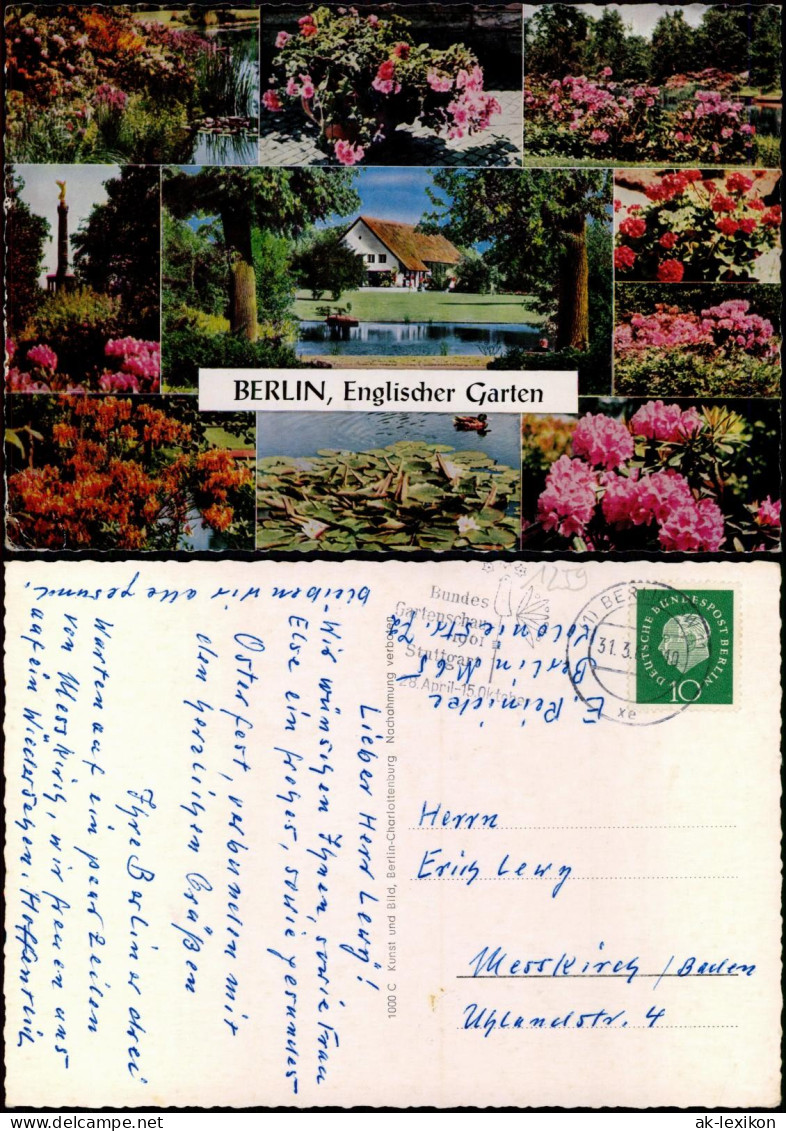 BERLIN, Englischer Garten
1259
Bundes
Gartenschau
1961
Stuttgart
28. April-15. Oktober
(1) BERLIN
31.3.
xe
DEUTSCHE BUNDESPOST BERLIN
10
E. Reinicker
Berlin N 65
Koloniestr. 28
Lieber Herr Lewy!
Wir wünschen Ihnen, sowie Frau
Else ein frohes, sowie gesundes
Osterfest, verbunden mit
den herzlichen Grüßen
Ihre Berliner drei
Warten auf ein paar Zeilen
von Messkirch, wir freuen uns
auf ein Wiedersehen. Hoffentlich
bleiben wir alle gesund.
1000 C Kunst und Bild, Berlin-Charlottenburg Nachahmung verboten
Herrn
Erich Lewy
Messkirch / Baden
Uhlandstr. 4
ak-lexikon